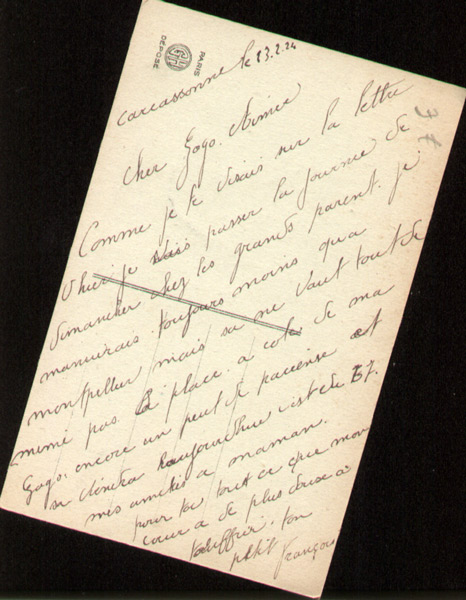 PARIS
GH
DEPOSÉ
3 €
Carcassonne le 23.2.24
Cher Gogo. Aimée
Comme je te disais sur la lettre
d'hier je vais passer la journée de
dimanche chez les grands parent. je
manuirais. toujours moins qua
montpellier mais sa ne vaut tout de
meme pas la place. a coté de ma
Gogo. encore un peut de paciense et
se aujourd'hui c'est de 57.
mes amitiés a maman.
pour toi tout ce que mon
cœur a de plus doux a
t'offrir. ton
petit François